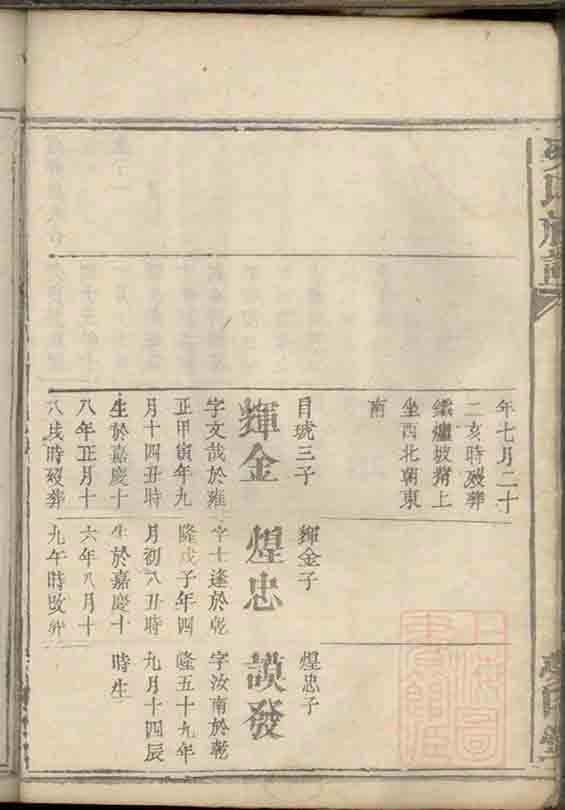 年七月二十
二亥時歿葬
鐵爐坡脊上
坐西北朝東
南
目琥三子
輝金
字文哉於雍
正甲寅年九
月十四丑時
生於嘉慶十
八年正月十
八戌時歿葬
輝金子
煌忠
字士逢於乾
隆戊子年四
月初八丑時
生於嘉慶十
六年八月十
九午時歿
煌忠子
謨發
字汝南於乾
隆五十九年
九月十四辰
時生
上海圖書館藏